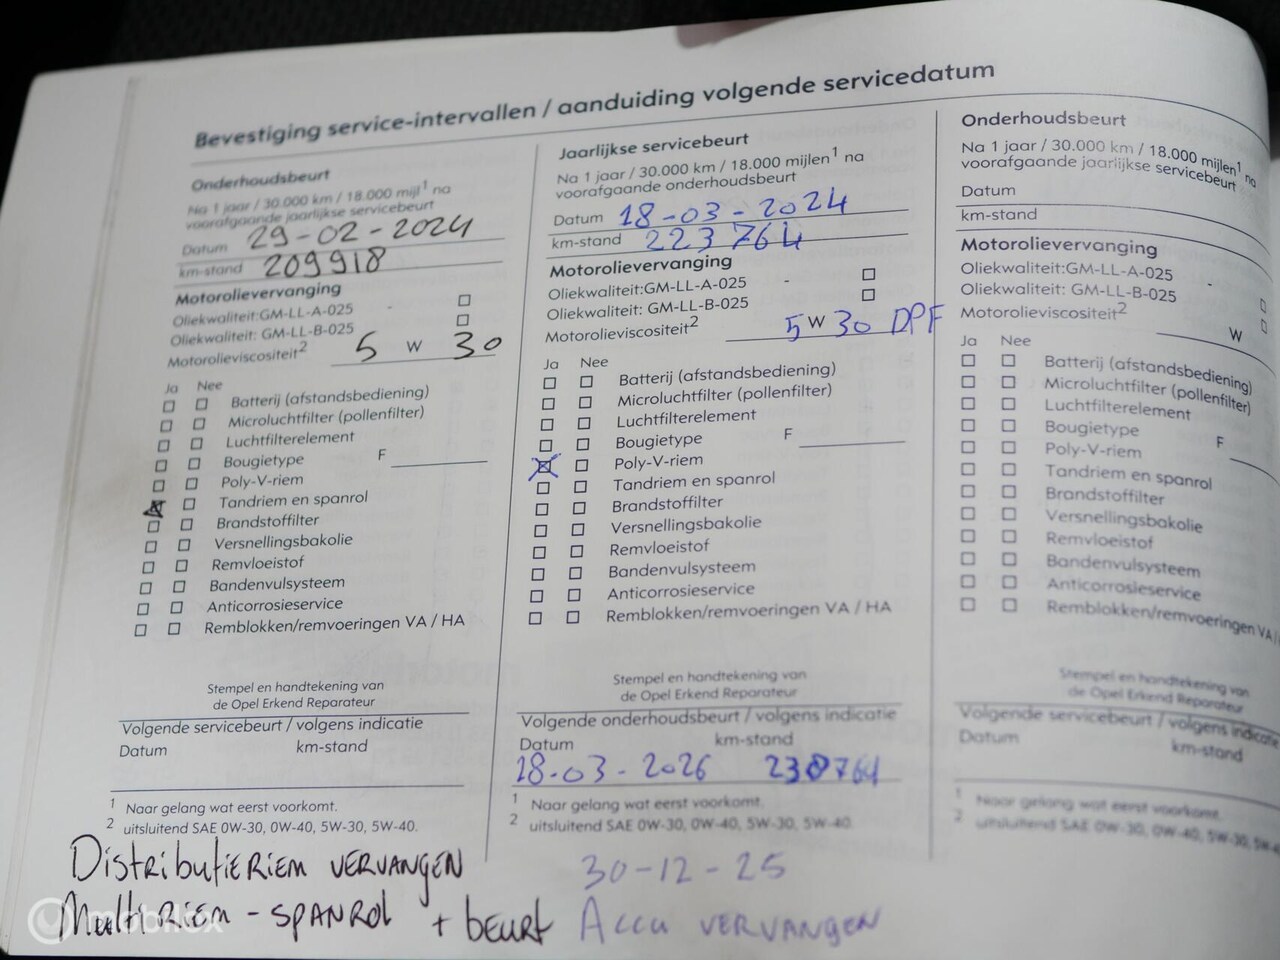 Bevestiging service-intervallen / aanduiding volgende servicedatum
Onderhoudsbeurt
Na 1 jaar / 30.000 km / 18.000 mijl¹ na
voorafgaande jaarlijkse servicebeurt
Datum 29-02-2024
km-stand 209918
Motorolievervanging
Oliekwaliteit:GM-LL-A-025 -
Oliekwaliteit: GM-LL-B-025
Motorolieviscositeit² 5 W 30
Ja Nee
Batterij (afstandsbediening)
Microluchtfilter (pollenfilter)
Luchtfilterelement
Bougietype F
Poly-V-riem
Tandriem en spanrol
Brandstoffilter
Versnellingsbakolie
Remvloeistof
Bandenvulsysteem
Anticorrosieservice
Remblokken/remvoeringen VA / HA
Stempel en handtekening van
de Opel Erkend Reparateur
Volgende servicebeurt / volgens indicatie
Datum km-stand
¹ Naar gelang wat eerst voorkomt.
² uitsluitend SAE 0W-30, 0W-40, 5W-30, 5W-40.
Distributieriem vervangen
Multiriem - spanrol + beurt
Jaarlijkse servicebeurt
Na 1 jaar / 30.000 km / 18.000 mijlen¹ na
voorafgaande onderhoudsbeurt
Datum 18-03-2024
km-stand 223764
Motorolievervanging
Oliekwaliteit:GM-LL-A-025 -
Oliekwaliteit: GM-LL-B-025
Motorolieviscositeit² 5 W 30 DPF
Ja Nee
Batterij (afstandsbediening)
Microluchtfilter (pollenfilter)
Luchtfilterelement
Bougietype F
Poly-V-riem
Tandriem en spanrol
Brandstoffilter
Versnellingsbakolie
Remvloeistof
Bandenvulsysteem
Anticorrosieservice
Remblokken/remvoeringen VA / HA
Stempel en handtekening van
de Opel Erkend Reparateur
Volgende onderhoudsbeurt / volgens indicatie
Datum km-stand
18-03-2026 238764
¹ Naar gelang wat eerst voorkomt.
² uitsluitend SAE 0W-30, 0W-40, 5W-30, 5W-40.
30-12-25
Accu vervangen
Onderhoudsbeurt
Na 1 jaar / 30.000 km / 18.000 mijlen¹ na
voorafgaande jaarlijkse servicebeurt
Datum
km-stand
Motorolievervanging
Oliekwaliteit:GM-LL-A-025 -
Oliekwaliteit: GM-LL-B-025
Motorolieviscositeit² W
Ja Nee
Batterij (afstandsbediening)
Microluchtfilter (pollenfilter)
Luchtfilterelement
Bougietype F
Poly-V-riem
Tandriem en spanrol
Brandstoffilter
Versnellingsbakolie
Remvloeistof
Bandenvulsysteem
Anticorrosieservice
Remblokken/remvoeringen VA /
Stempel en handtekening van
de Opel Erkend Reparateur
Volgende servicebeurt / volgens indicatie
Datum km-stand
¹ Naar gelang wat eerst voorkomt.
² uitsluitend SAE 0W-30, 0W-40, 5W-30, 5W-40
mobilox